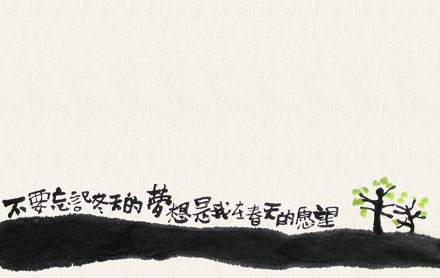 不要忘記冬天的夢想是我在春天的愿望